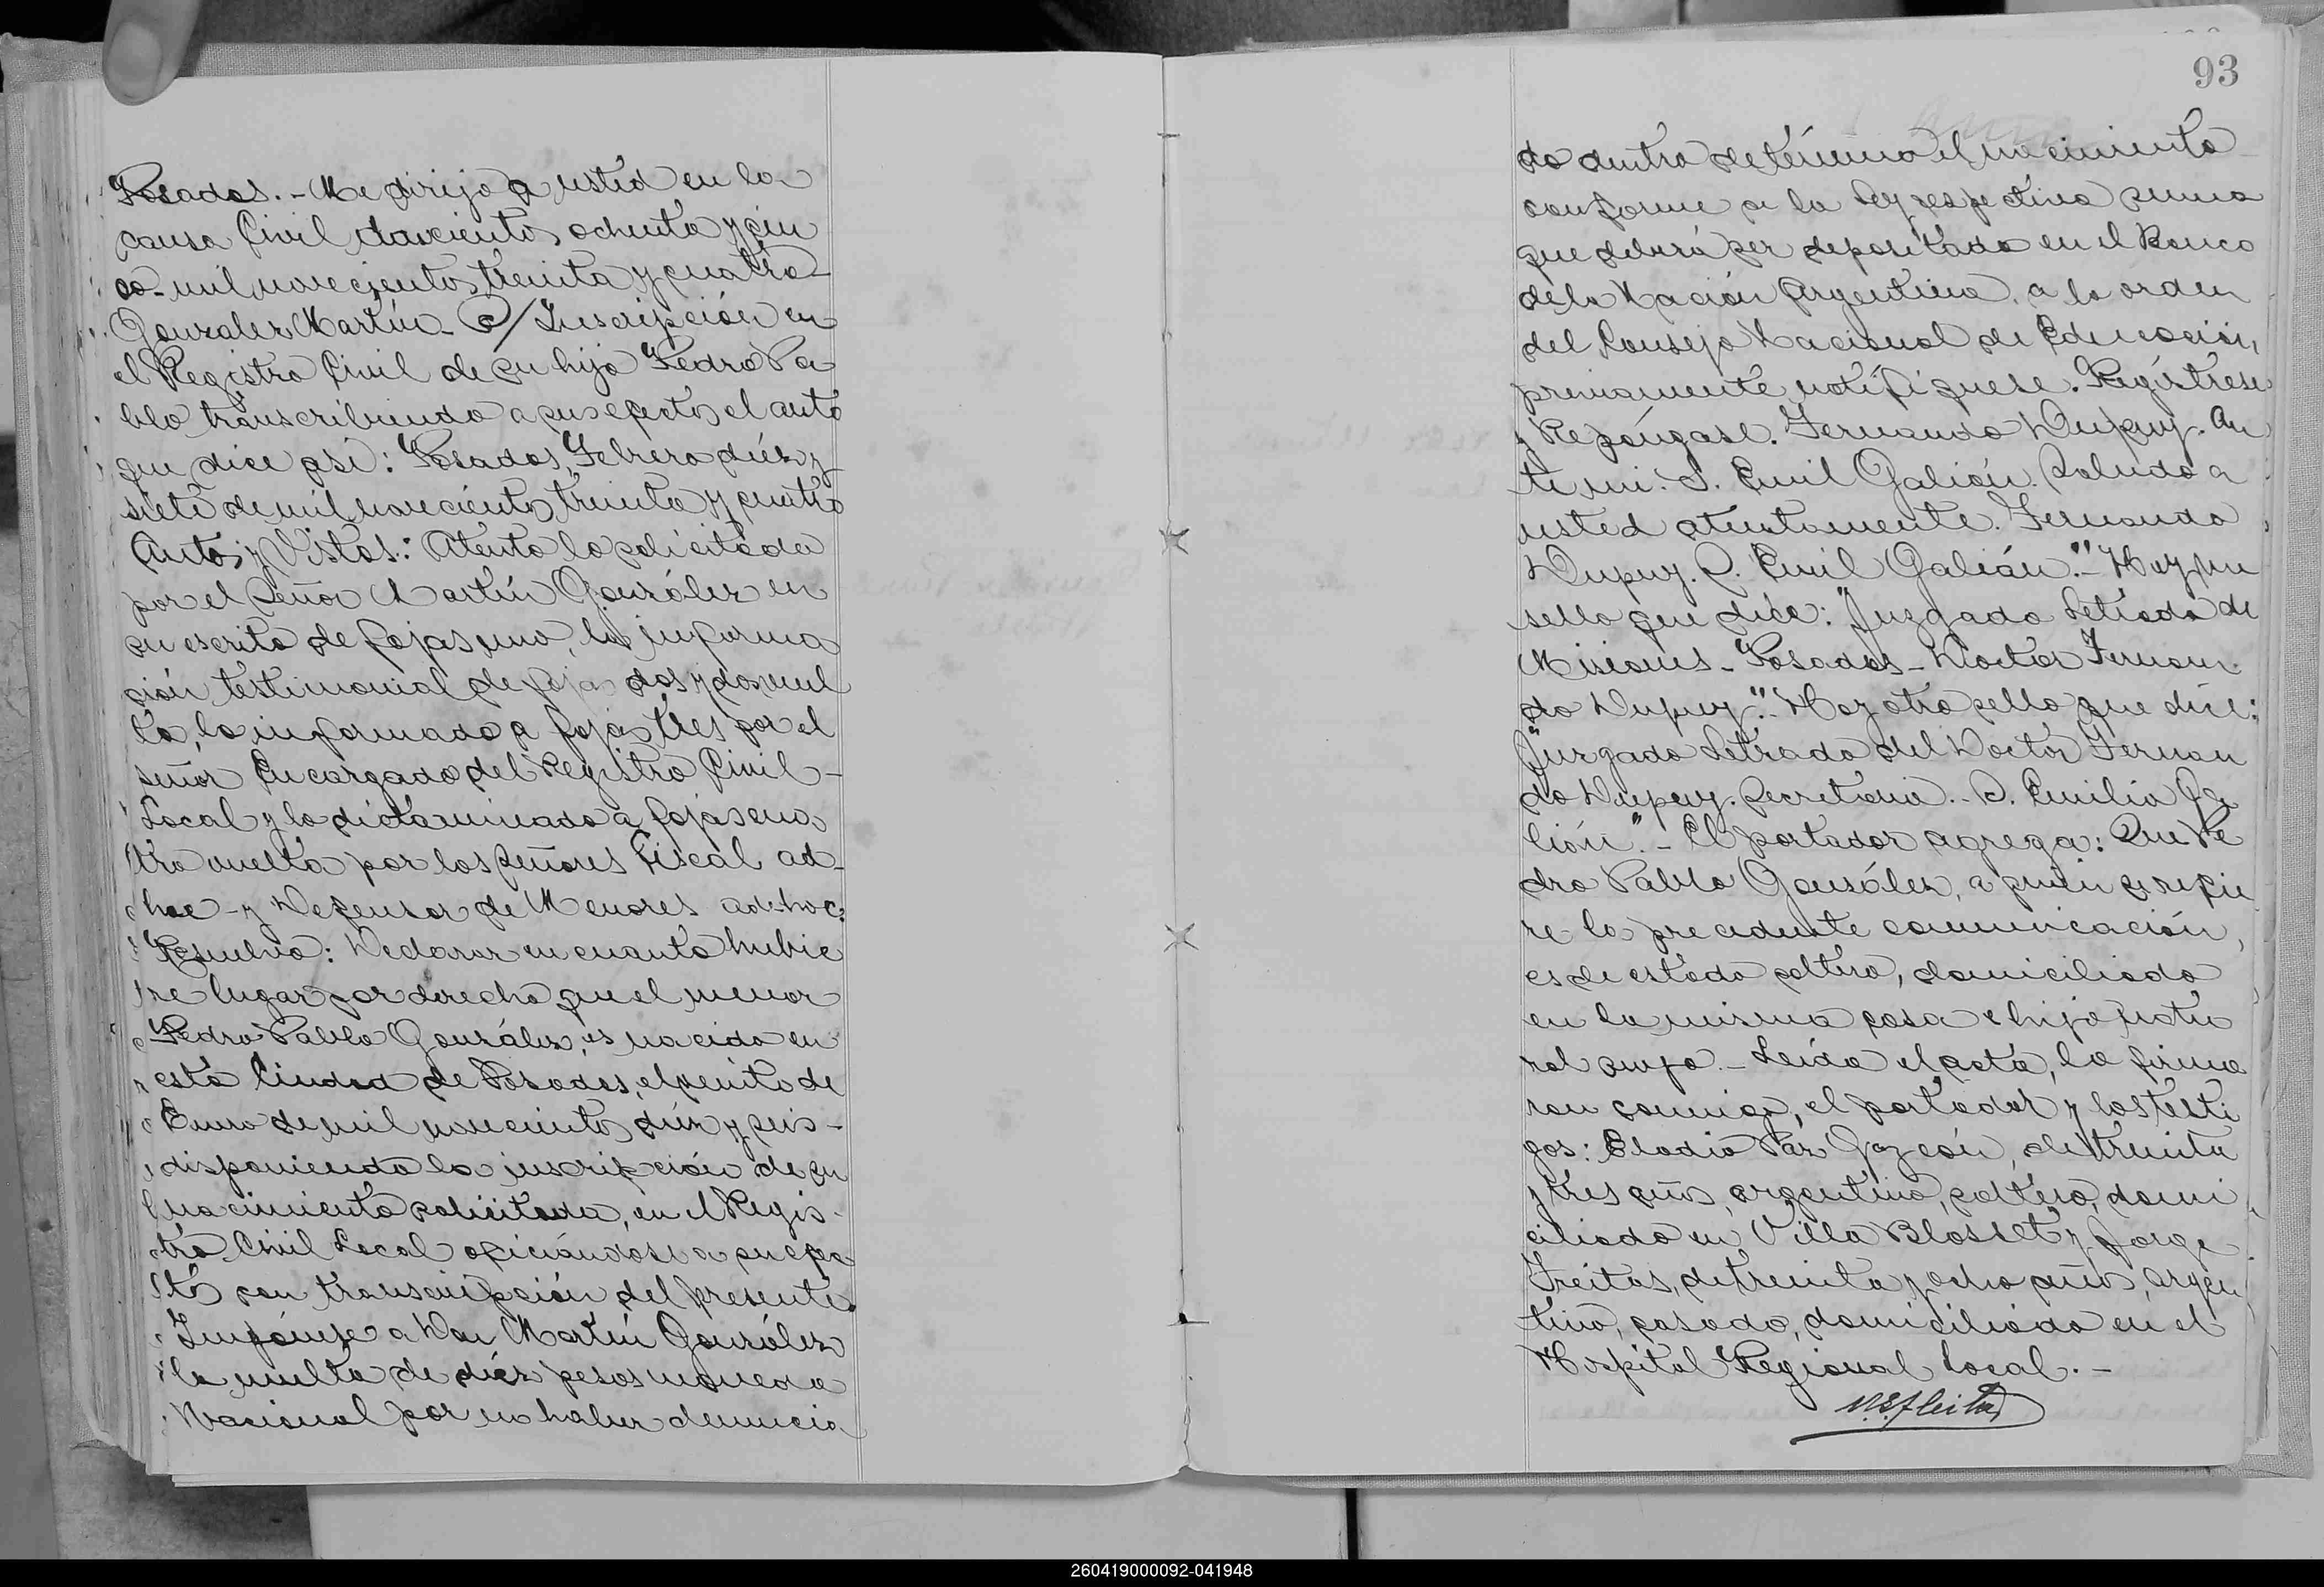 Posadas.- Me dirijo a usted en la
causa Civil doscientos ochenta y cin
co- mil novecientos treinta y cuatro-
Gonzalez Martín- S/Inscripción en
el Registro Civil de su hijo Pedro Pa
blo transcribiendo a sus efectos el auto
que dice así: Posadas, Febrero diez y
siete de mil novecientos treinta y cuatro
Autos y Vistos: Atento lo solicitado
por el Señor Martín González en
su escrito de fojas uno, la informa
ción testimonial de foja dos y dos vuel
ta, lo informado a fojas tres por el
señor Encargado del Registro Civil-
Local y lo dictaminado a fojas cua
tro vuelta por los Señores Fiscal ad-
hoc- y Defensor de Menores ad-hoc:
Resuelvo: Declarar en cuanto hubie
re lugar por derecho que el menor
Pedro Pablo González, es nacido en
esta Ciudad de Posadas, el veinte de
Enero de mil novecientos diez y seis-
disponiendo la inscripción de su
nacimiento solicitada, en el Regis-
tro Civil Local oficiándose a su efec
to con transcripción del presente.
Impónese a Don Martín González
la multa de diez pesos moneda
Nacional por no haber denuncia
93
do dentro de término el nacimiento
conforme a la Ley respectiva suma
que deberá ser depositada en el Banco
de la Nación Argentina, a la orden
del Consejo Nacional de Educación,
previamente notifíquese. Regístrese
y Repóngase. Fernando Dupuy. An
te mi: S. Emil Galián. Saludo a
usted atentamente. Fernando
Dupuy. S. Emil Galián."- Hay un
sello que dice: "Juzgado Letrado de
Misiones- Posadas- Doctor Fernan-
do Dupuy".- Hay otro sello que dice:
"Juzgado Letrado del Doctor Fernan
do Dupuy. Secretaria.- S. Emilio Ga
lián".- El portador agrega: Que Pe
dro Pablo González, a quien se refie
re la precedente comunicación,
es de estado soltero, domiciliado
en la misma casa e hijo natu
ral suyo.- Leída el acta, la firma
ron conmigo, el portador y los testi
gos: Eladio Paz, de treinta
y tres años, argentino, soltero, domi
ciliado en Villa Blosset y Jorge
Freitas, de treinta y ocho años, argen
tino, casado, domiciliado en el
Hospital Regional local.-
260419000092-041948